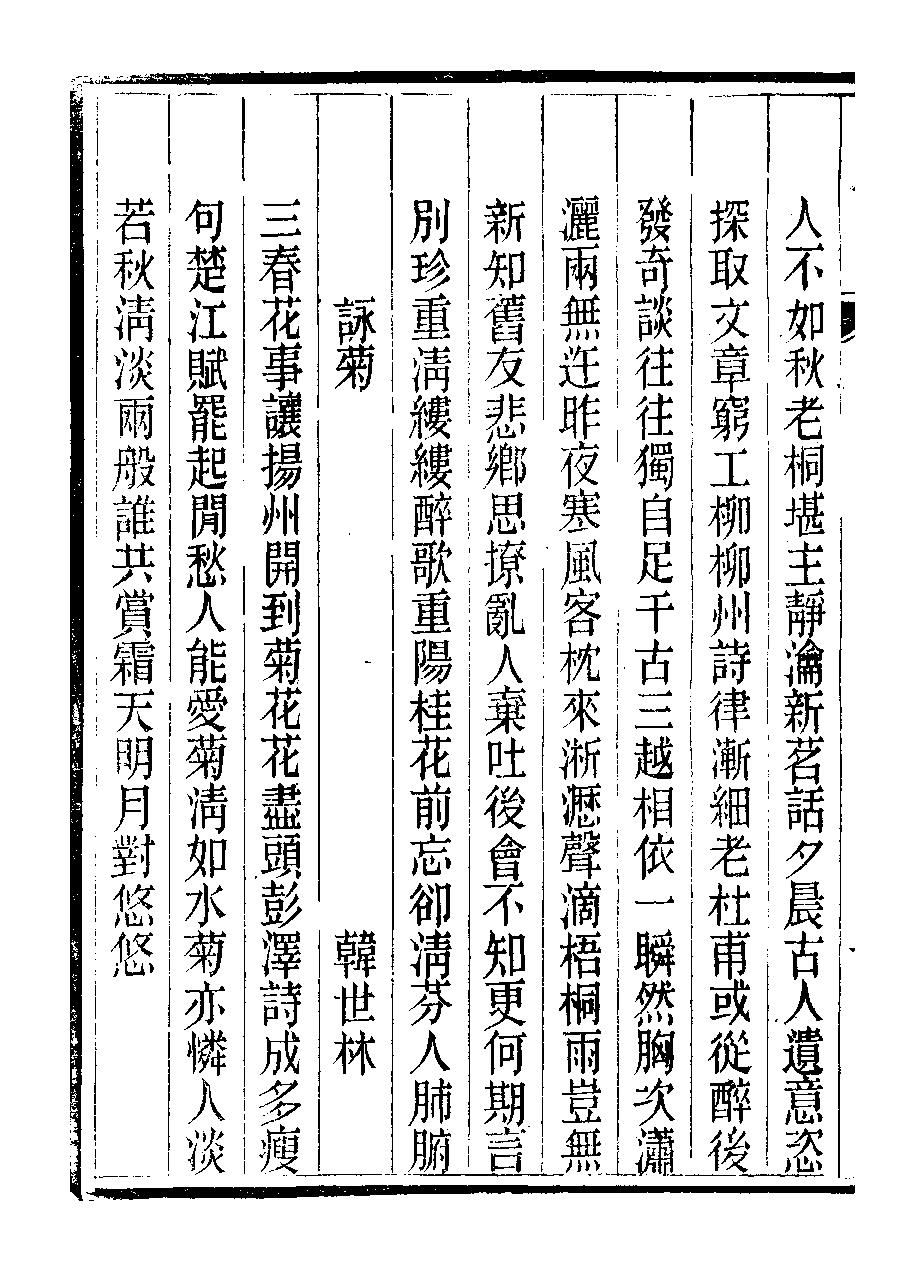 人不如秋老桐堪主靜瀹新茗話夕晨古人遺意恣
探取文章窮工柳柳州詩律漸細老杜甫或從醉後
發奇談往往獨自足千古三越相依一瞬然胸次瀟
灑兩無迕昨夜寒風客枕來淅瀝聲滴梧桐雨豈無
新知舊友悲鄉思撩亂人棄吐後會不知更何期言
別珍重淸縷縷醉歌重陽桂花前忘卻淸芬人肺腑
詠菊　韓世林
三春花事讓揚州開到菊花花盡頭彭澤詩成多瘦
句楚江賦罷起閒愁人能愛菊淸如水菊亦憐人淡
若秋淸淡兩般誰共賞霜天明月對悠悠